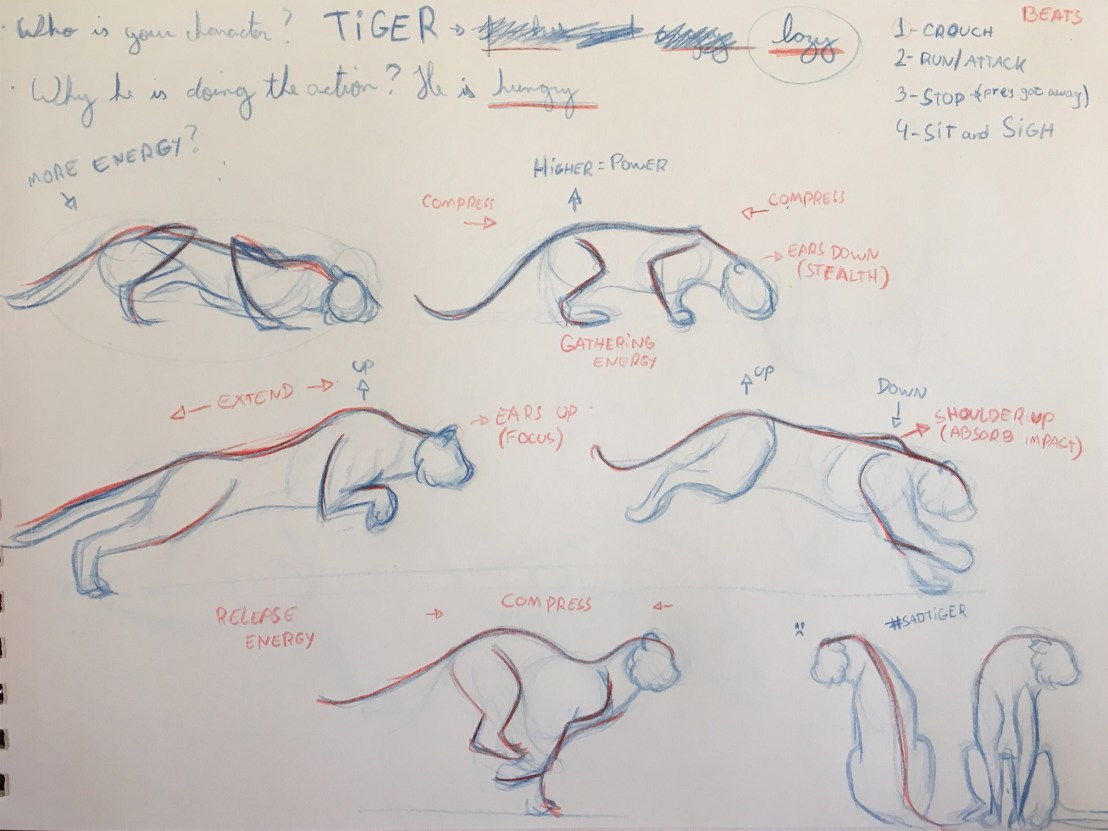 · Who is your character? TiGER → lazy
· Why he is doing the action? He is hungry
BEATS
1- CROUCH
2- RUN/ATTACK
3- STOP → (prey got away)
4- SiT and SiGH
MORE ENERGY?
HiGHER = POWER
COMPRESS
COMPRESS
EARS DOWN
(STEALTH)
GATHERiNG
ENERGY
UP
← EXTEND →
EARS UP
(FOCUS)
UP
DOWN
SHOULDER UP
(ABSORB iMPACT)
RELEASE
ENERGY
COMPRESS
#SADTiGER